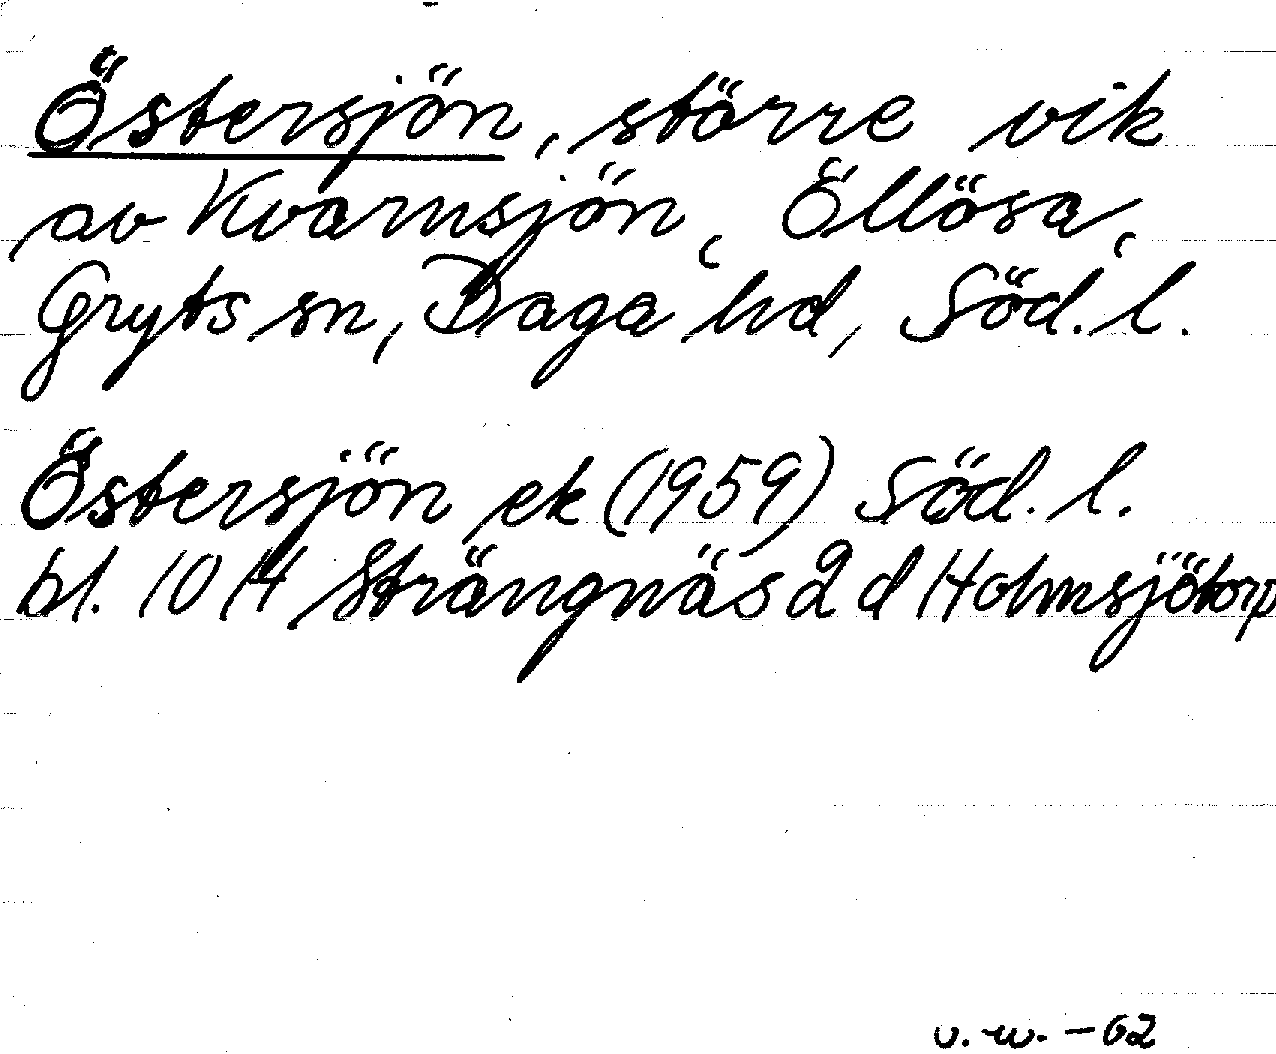 Östersjön, större vik
av Kvarnsjön, Öllösa,
Gryts sn, Daga hd, Söd. l.
Östersjön ek (1959) Söd. l.
bl. 10 H Strängnäs 2 d Holmsjötorp
v. w. -62